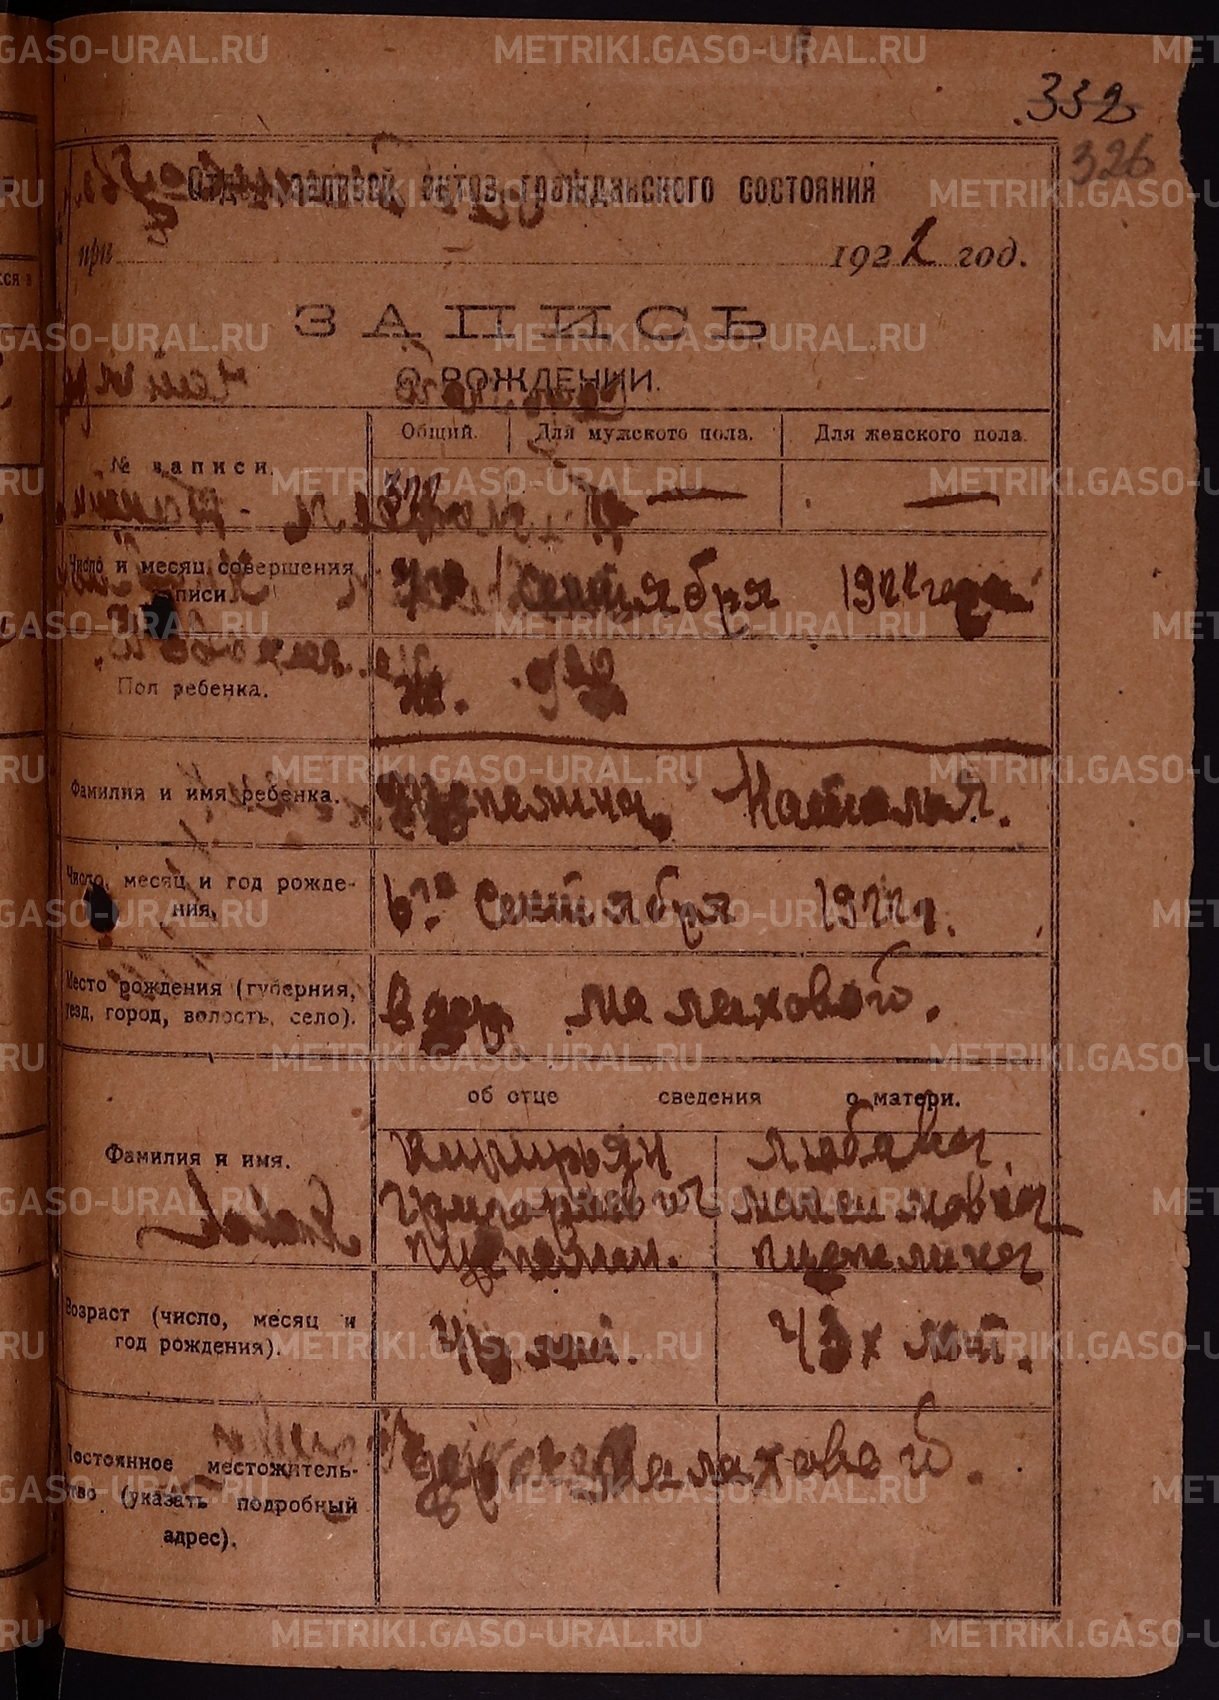 332
326
Отдел записей актов гражданского состояния
при 1922 год.
ЗАПИСЬ
О РОЖДЕНИИ.
№ записи.
Общий. Для мужского пола. Для женского пола.
322
Число и месяц совершения
записи.
Сентября 1922 года
Пол ребенка.
Ж.
Фамилия и имя ребенка.
Щепелина Наталья.
Число, месяц и год рожде-
ния,
6го Сентября 1922 г.
Место рождения (губерния,
уезд, город, волость, село).
в дер Малаховой.
об отце сведения о матери.
Фамилия и имя.
Киприян
Григорьевич
Щепелин.
Любава
Максимовна
Щепелина
Возраст (число, месяц и
год рождения).
лет.
43х лет.
Постоянное местожитель-
ство (указать подробный
адрес).
Малаховой.
METRIKI.GASO-URAL.RU